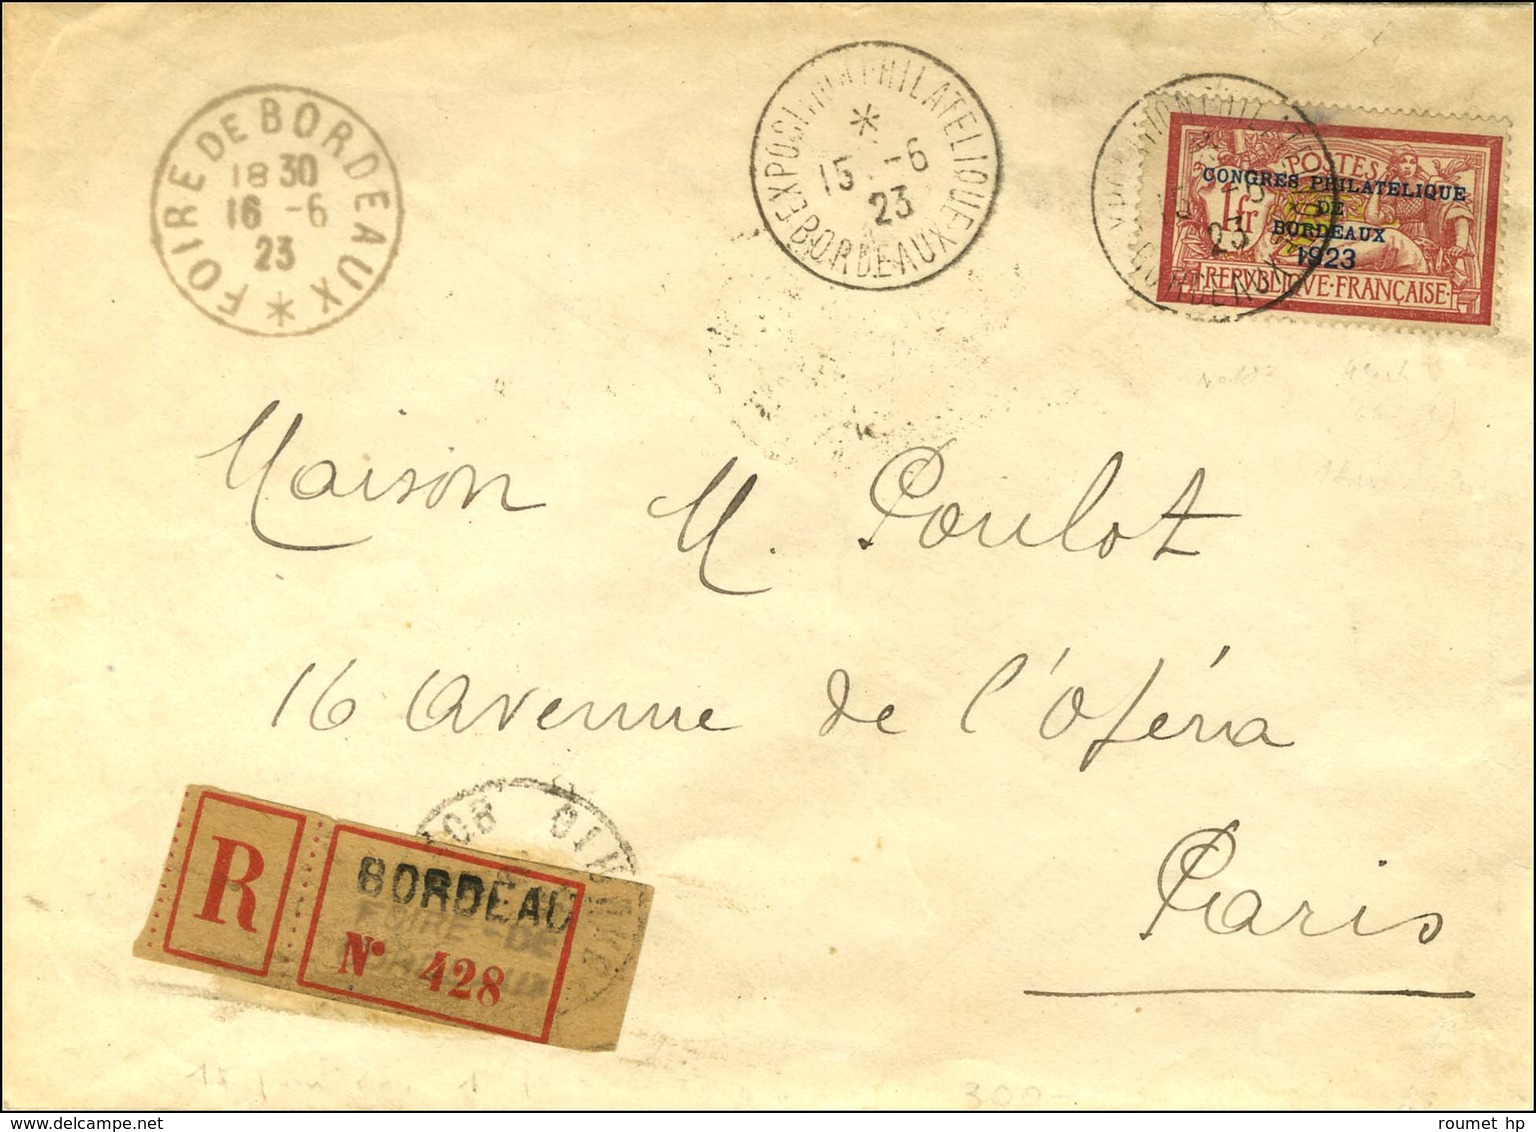 FOIRE DE BORDEAUX *
18 30
16 -6
23
PHILATELIQUE
*
15 -6
23
BORDEAUX
23
POSTES
CONGRES PHILATELIQUE
DE
BORDEAUX
1923
1fr
REPVBLIQVE·FRANÇAISE
Maison M. Poulot
16 Avenue de l'Opéra
Paris
R
BORDEAU
FOIRE DE
BORDEAUX
N° 428
300-
roumet hp